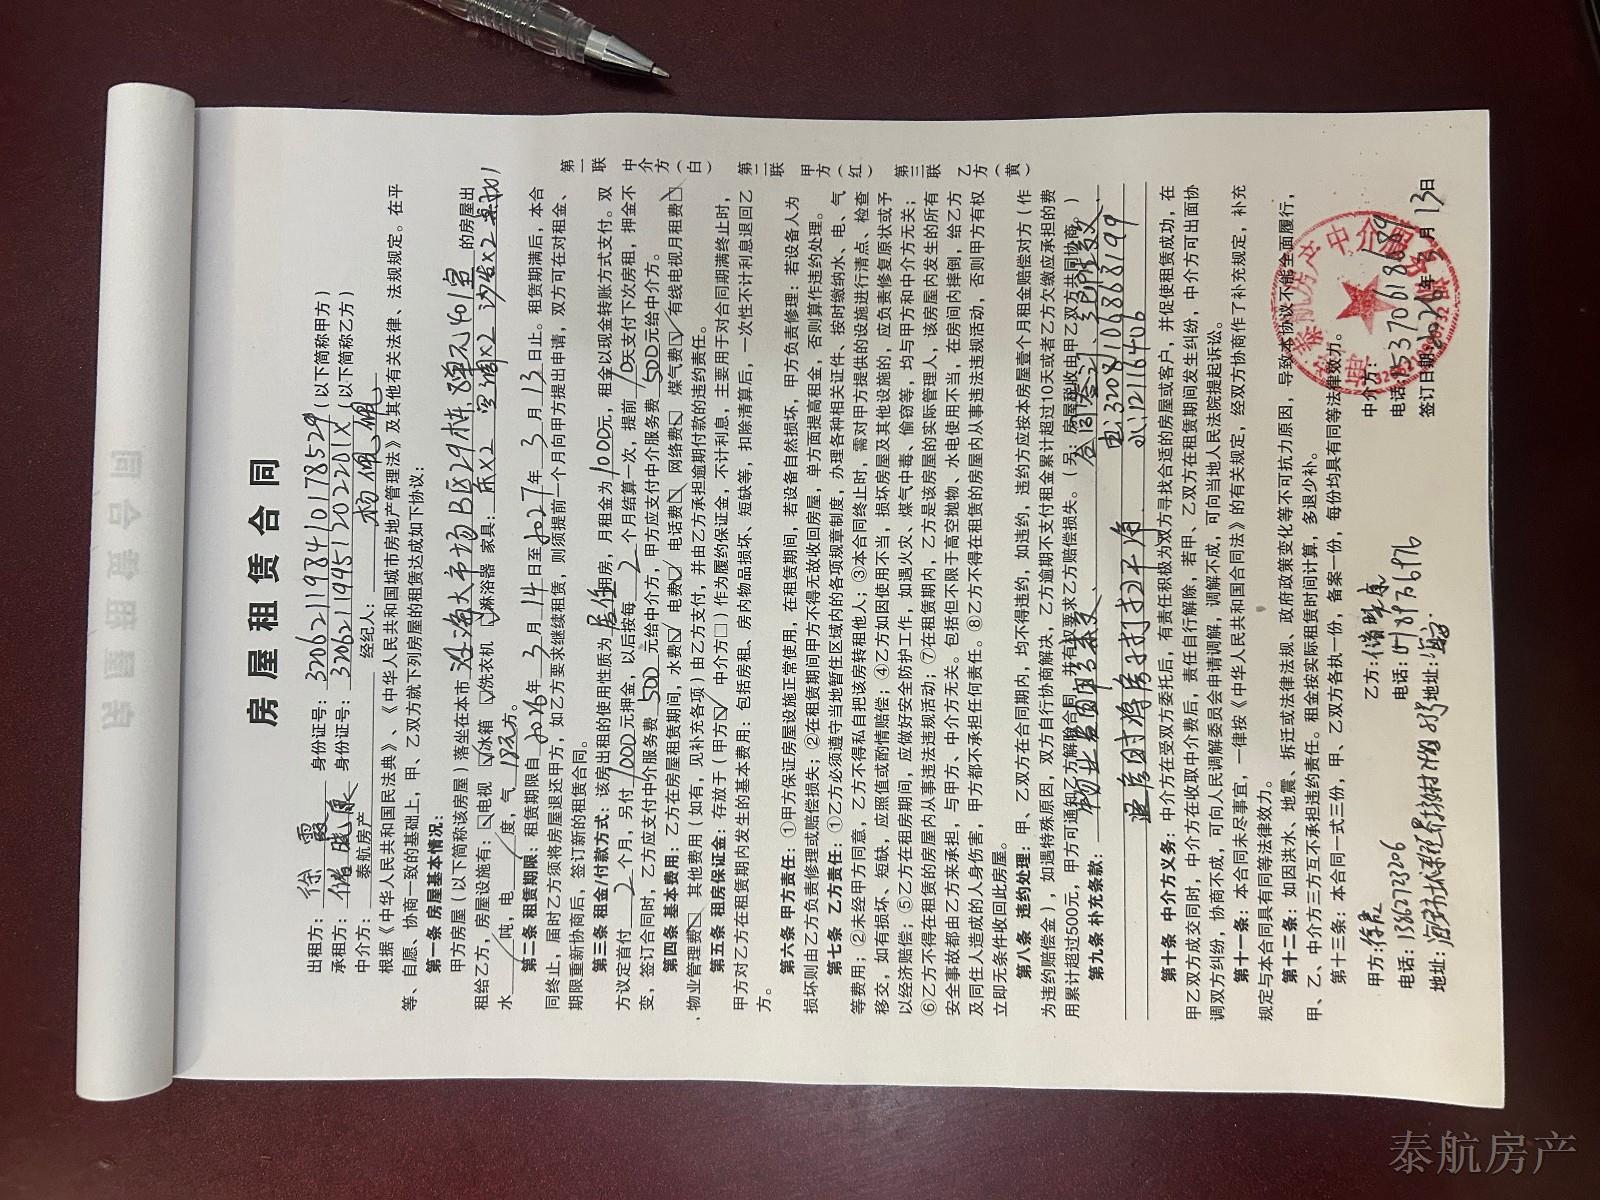 房屋租赁合同
出租方：徐霞 身份证号：320621198410178529（以下简称甲方）
承租方：储晓康 身份证号：32062119951202201X（以下简称乙方）
中介方：泰航房产 经纪人：杨佩佩
根据《中华人民共和国民法典》、《中华人民共和国城市房地产管理法》及其他有关法律、法规规定。在平
等、自愿、协商一致的基础上，甲、乙双方就下列房屋的租赁达成如下协议：
第一条 房屋基本情况：
甲方房屋（以下简称该房屋）落坐在本市 大市场B区29栋 单元401室 的房屋出
租给乙方，房屋设施有：电视 冰箱 洗衣机 淋浴器 家具：床X2 空调X2 沙发X2 桌 1
水 吨，电 度，气 方。
第二条 租赁期限：租赁期限自2026年3月14日至2027年3月13日止。租赁期满后，本合
同终止，届时乙方须将房屋退还甲方，如乙方要求继续租赁，则须提前一个月向甲方提出申请，双方可在对租金、
期限重新协商后，签订新的租赁合同。
第三条 租金付款方式：该房出租的使用性质为居住用房，月租金为1000元，租金以现金转账方式支付。双
方议定首付2个月，另付1000元押金，以后按每2个月结算一次，提前10天支付下次房租，押金不
变，签订合同时，乙方应支付中介服务费500元给中介方，甲方应支付中介服务费500元给中介方。
第四条 基本费用：乙方在房屋租赁期间，水费 电费 电话费 网络费 煤气费 有线电视月租费
、物业管理费 其他费用（如有，见补充各项）由乙方支付，并由乙方承担逾期付款的违约责任。
第五条 租房保证金：存放于（甲方☑ 中介方□）作为履约保证金，不计利息，主要用于对合同期满终止时，
甲方对乙方在租赁期内发生的基本费用：包括房租、房内物品损坏、短缺等，扣除清算后，一次性不计利息退回乙
方。
第六条 甲方责任：①甲方保证房屋设施正常使用，在租赁期间，若设备自然损坏，甲方负责修理：若设备人为
损坏则由乙方负责修理或赔偿损失；②在租赁期间甲方不得无故收回房屋，单方面提高租金，否则算作违约处理。
第七条 乙方责任：①乙方必须遵守当地暂住区域内的各项规章制度，办理各种相关证件、按时缴纳水、电、气
等费用；②未经甲方同意，乙方不得私自把该房转租他人；③本合同终止时，需对甲方提供的设施进行清点、检查
移交，如有损坏、短缺，应照值或酌情赔偿；④乙方如因使用不当，损坏房屋及其他设施的，应负责修复原状或予
以经济赔偿；⑤乙方在租房期间，应做好安全防护工作，如遇火灾、煤气中毒、偷窃等，均与甲方和中介方无关；
⑥乙方不得在租赁的房屋内从事违法违规活动；⑦在租赁期内，乙方是该房屋的实际管理人，该房屋内发生的所有
安全事故都由乙方来承担，与甲方、中介方无关。包括但不限于高空抛物、水电使用不当，在房间内摔倒，给乙方
及同住人造成的人身伤害，甲方都不承担任何责任。⑧乙方不得在租赁的房屋内从事违法违规活动，否则甲方有权
立即无条件收回此房屋。
第八条 违约处理：甲、乙双方在合同期内，均不得违约，如违约，违约方应按本房屋壹个月租金赔偿对方（作
为违约赔偿金），如遇特殊原因，双方自行协商解决，乙方逾期不支付租金累计超过10天或者乙方欠缴应承担的费
用累计超过500元，甲方可通知乙方解除合同，并有权要求乙方赔偿损失。（另：房屋税收由甲乙双方共同协商。）
第九条 补充条款：物业费 电：3208110686863199
退房时将房打扫干净 水：1211616406
第十条 中介方义务：中介方在受双方委托后，有责任积极为双方寻找合适的房屋或客户，并促使租赁成功，在
甲乙双方成交同时，中介方在收取中介费后，责任自行解除，若甲、乙双方在租赁期间发生纠纷，中介方可出面协
调双方纠纷，协商不成，可向人民调解委员会申请调解，调解不成，可向当地人民法院提起诉讼。
第十一条：本合同未尽事宜，一律按《中华人民共和国合同法》的有关规定，经双方协商作了补充规定，补充
规定与本合同具有同等法律效力。
第十二条：如因洪水、地震、拆迁或法律法规、政府政策变化等不可抗力原因，导致本协议不能全面履行，
甲、乙、中介方三方互不承担违约责任。租金按实际租赁时间计算，多退少补。
第十三条：本合同一式三份，甲、乙双方各执一份，备案一份，每份均具有同等法律效力。
甲方：徐霞 乙方：储晓康 中介方：
电话：13862723206 电话： 电话：15370618689
地址： 地址： 签订日期：2026年3月13日
第一联 中介方（白） 第二联 甲方（红） 第三联 乙方（黄）
泰航房产